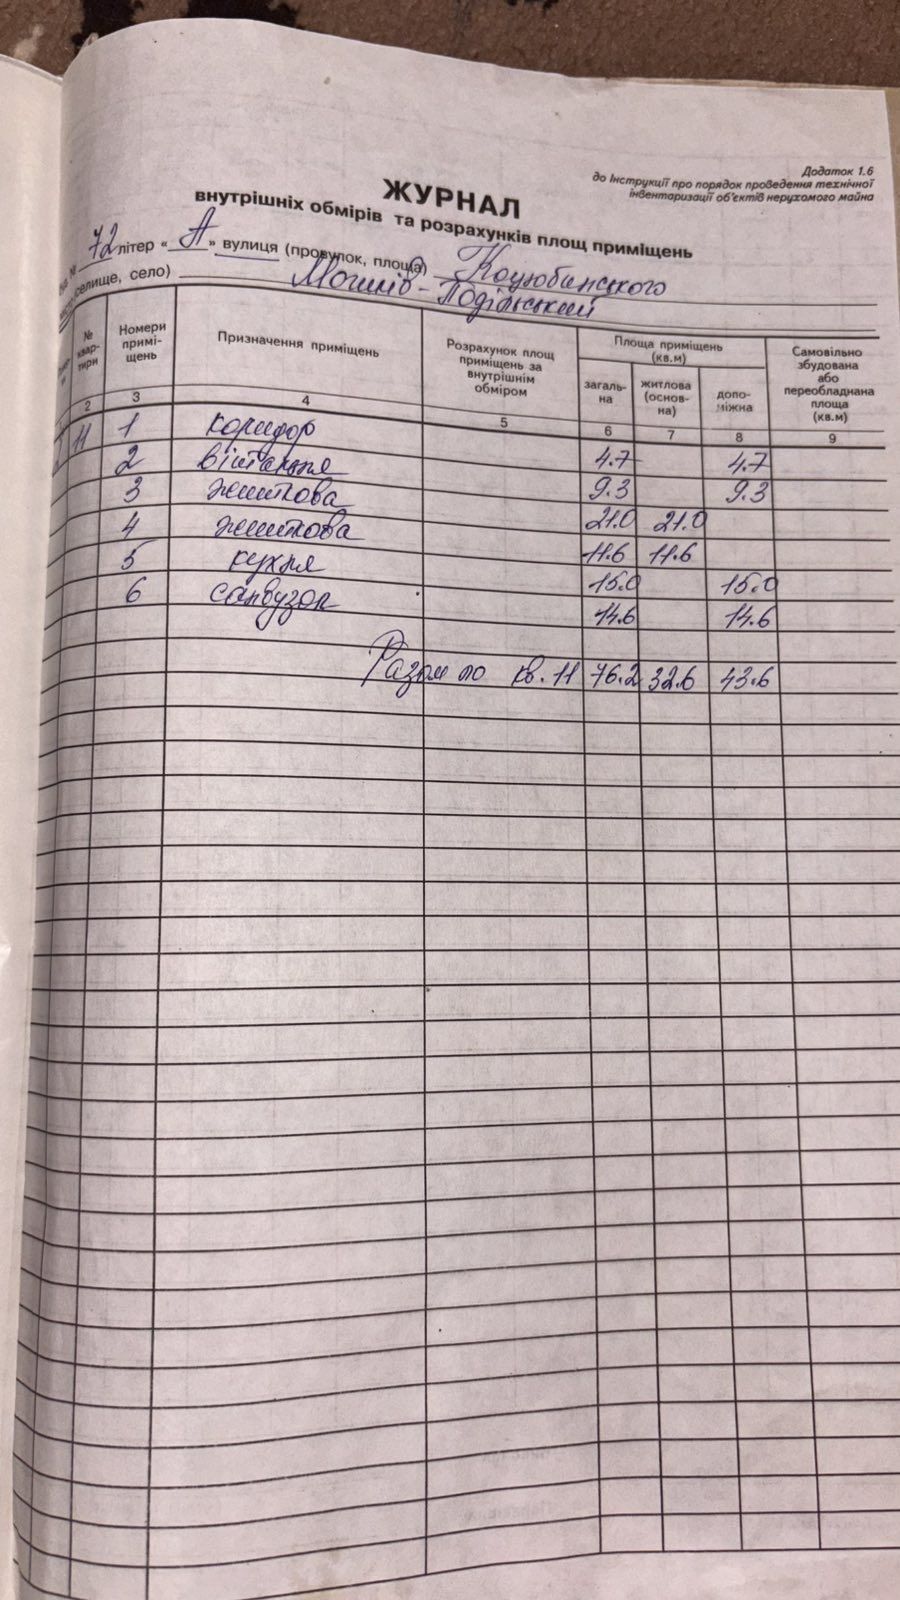 Додаток 1.6
до Інструкції про порядок проведення технічної
інвентаризації об'єктів нерухомого майна
ЖУРНАЛ
внутрішніх обмірів та розрахунків площ приміщень
№ 72 літер « А » вулиця (провулок, площа) Коцюбинського
(селище, село) Могилів-Подільський
№ квар-тири Номери примі-щень Призначення приміщень Розрахунок площ приміщень за внутрішнім обміром Площа приміщень (кв.м) Самовільно збудована або переобладнана площа (кв.м)
загаль-на житлова (основ-на) допо-міжна
2 3 4 5 6 7 8 9
11 1 коридор 4.7 4.7
2 вітальня 9.3 9.3
3 житкова 21.0 21.0
4 житкова 11.6 11.6
5 кухня 15.0 15.0
6 санвузол 14.6 14.6
Разом по кв. 11 76.2 32.6 43.6